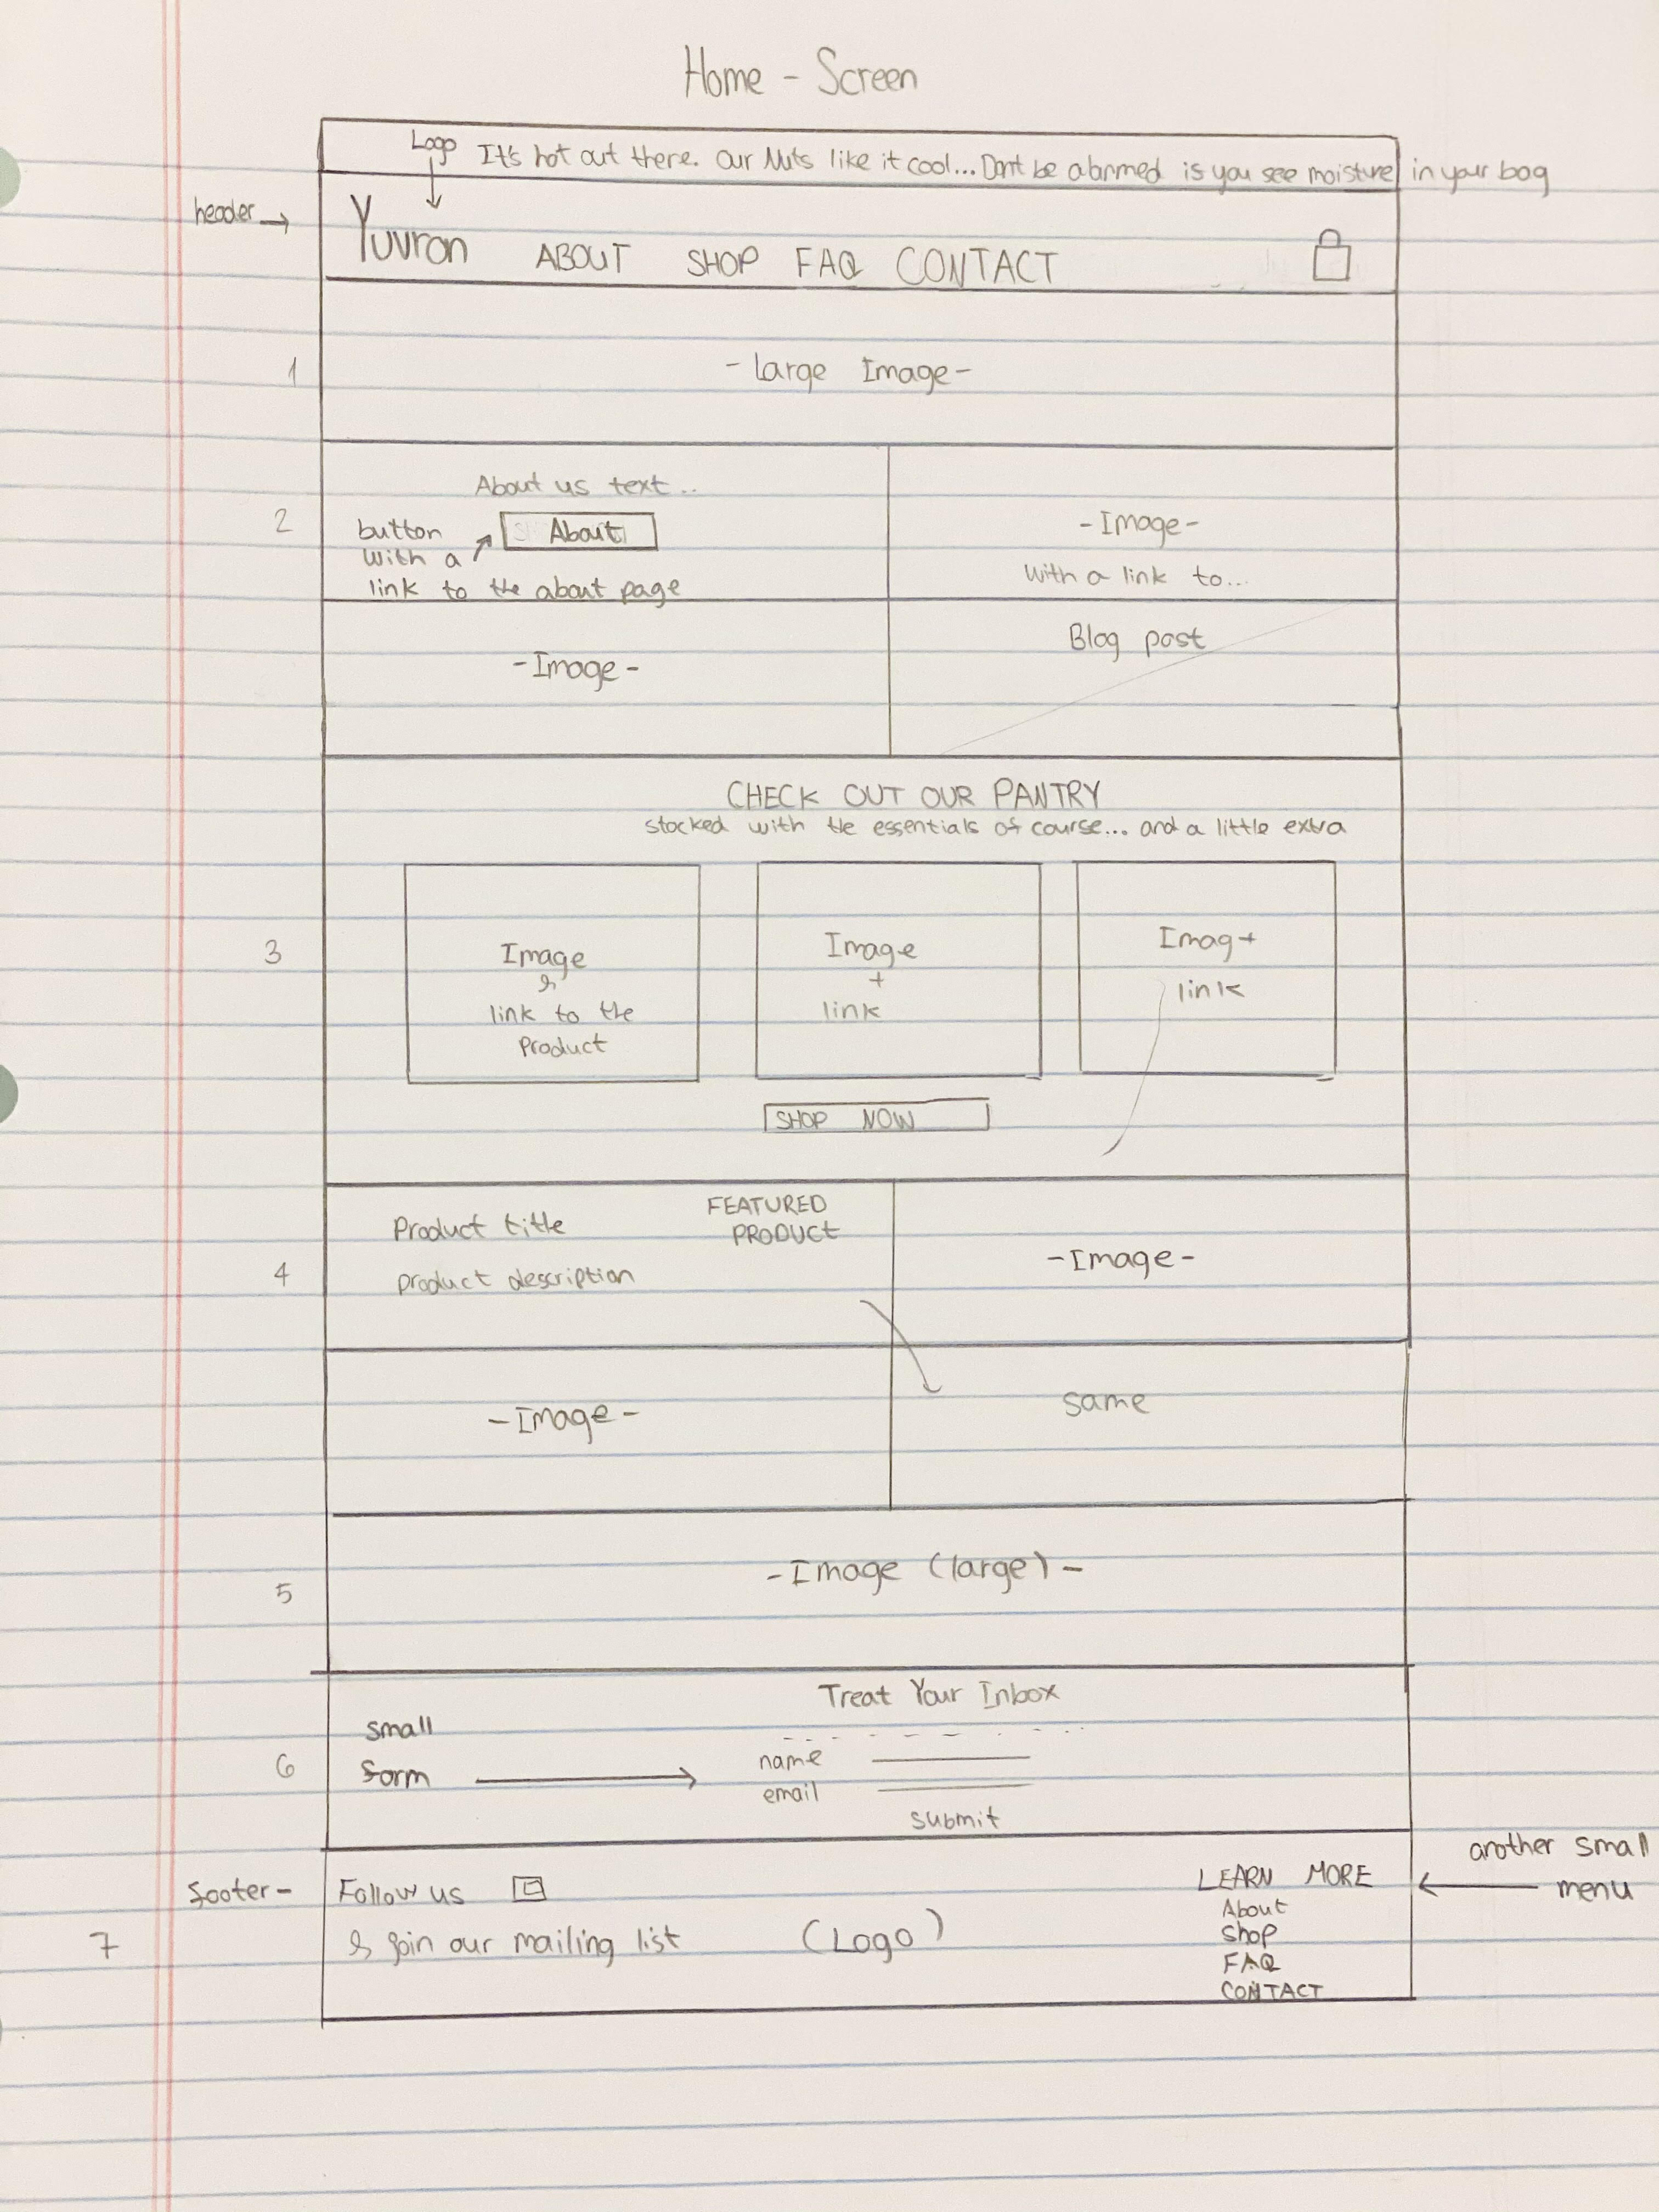 Home - Screen
Logo
It's hot out there. Our Nuts like it cool... Dont be alarmed is you see moisture in your bag
header →
Yuvron ABOUT SHOP FAQ CONTACT
1
- Large Image -
About us text..
2
button
with a
link to the about page
About
- Image -
with a link to...
- Image -
Blog post
CHECK OUT OUR PANTRY
stocked with the essentials of course... and a little extra
3
Image
&
link to the
product
Image
+
link
Imag +
link
SHOP NOW
4
Product title
FEATURED
PRODUCT
product description
- Image -
- Image -
same
5
- Image (large) -
Treat Your Inbox
6
small
form
name
email
submit
footer -
7
Follow us
& join our mailing list
(Logo)
LEARN MORE
About
Shop
FAQ
CONTACT
another small
menu